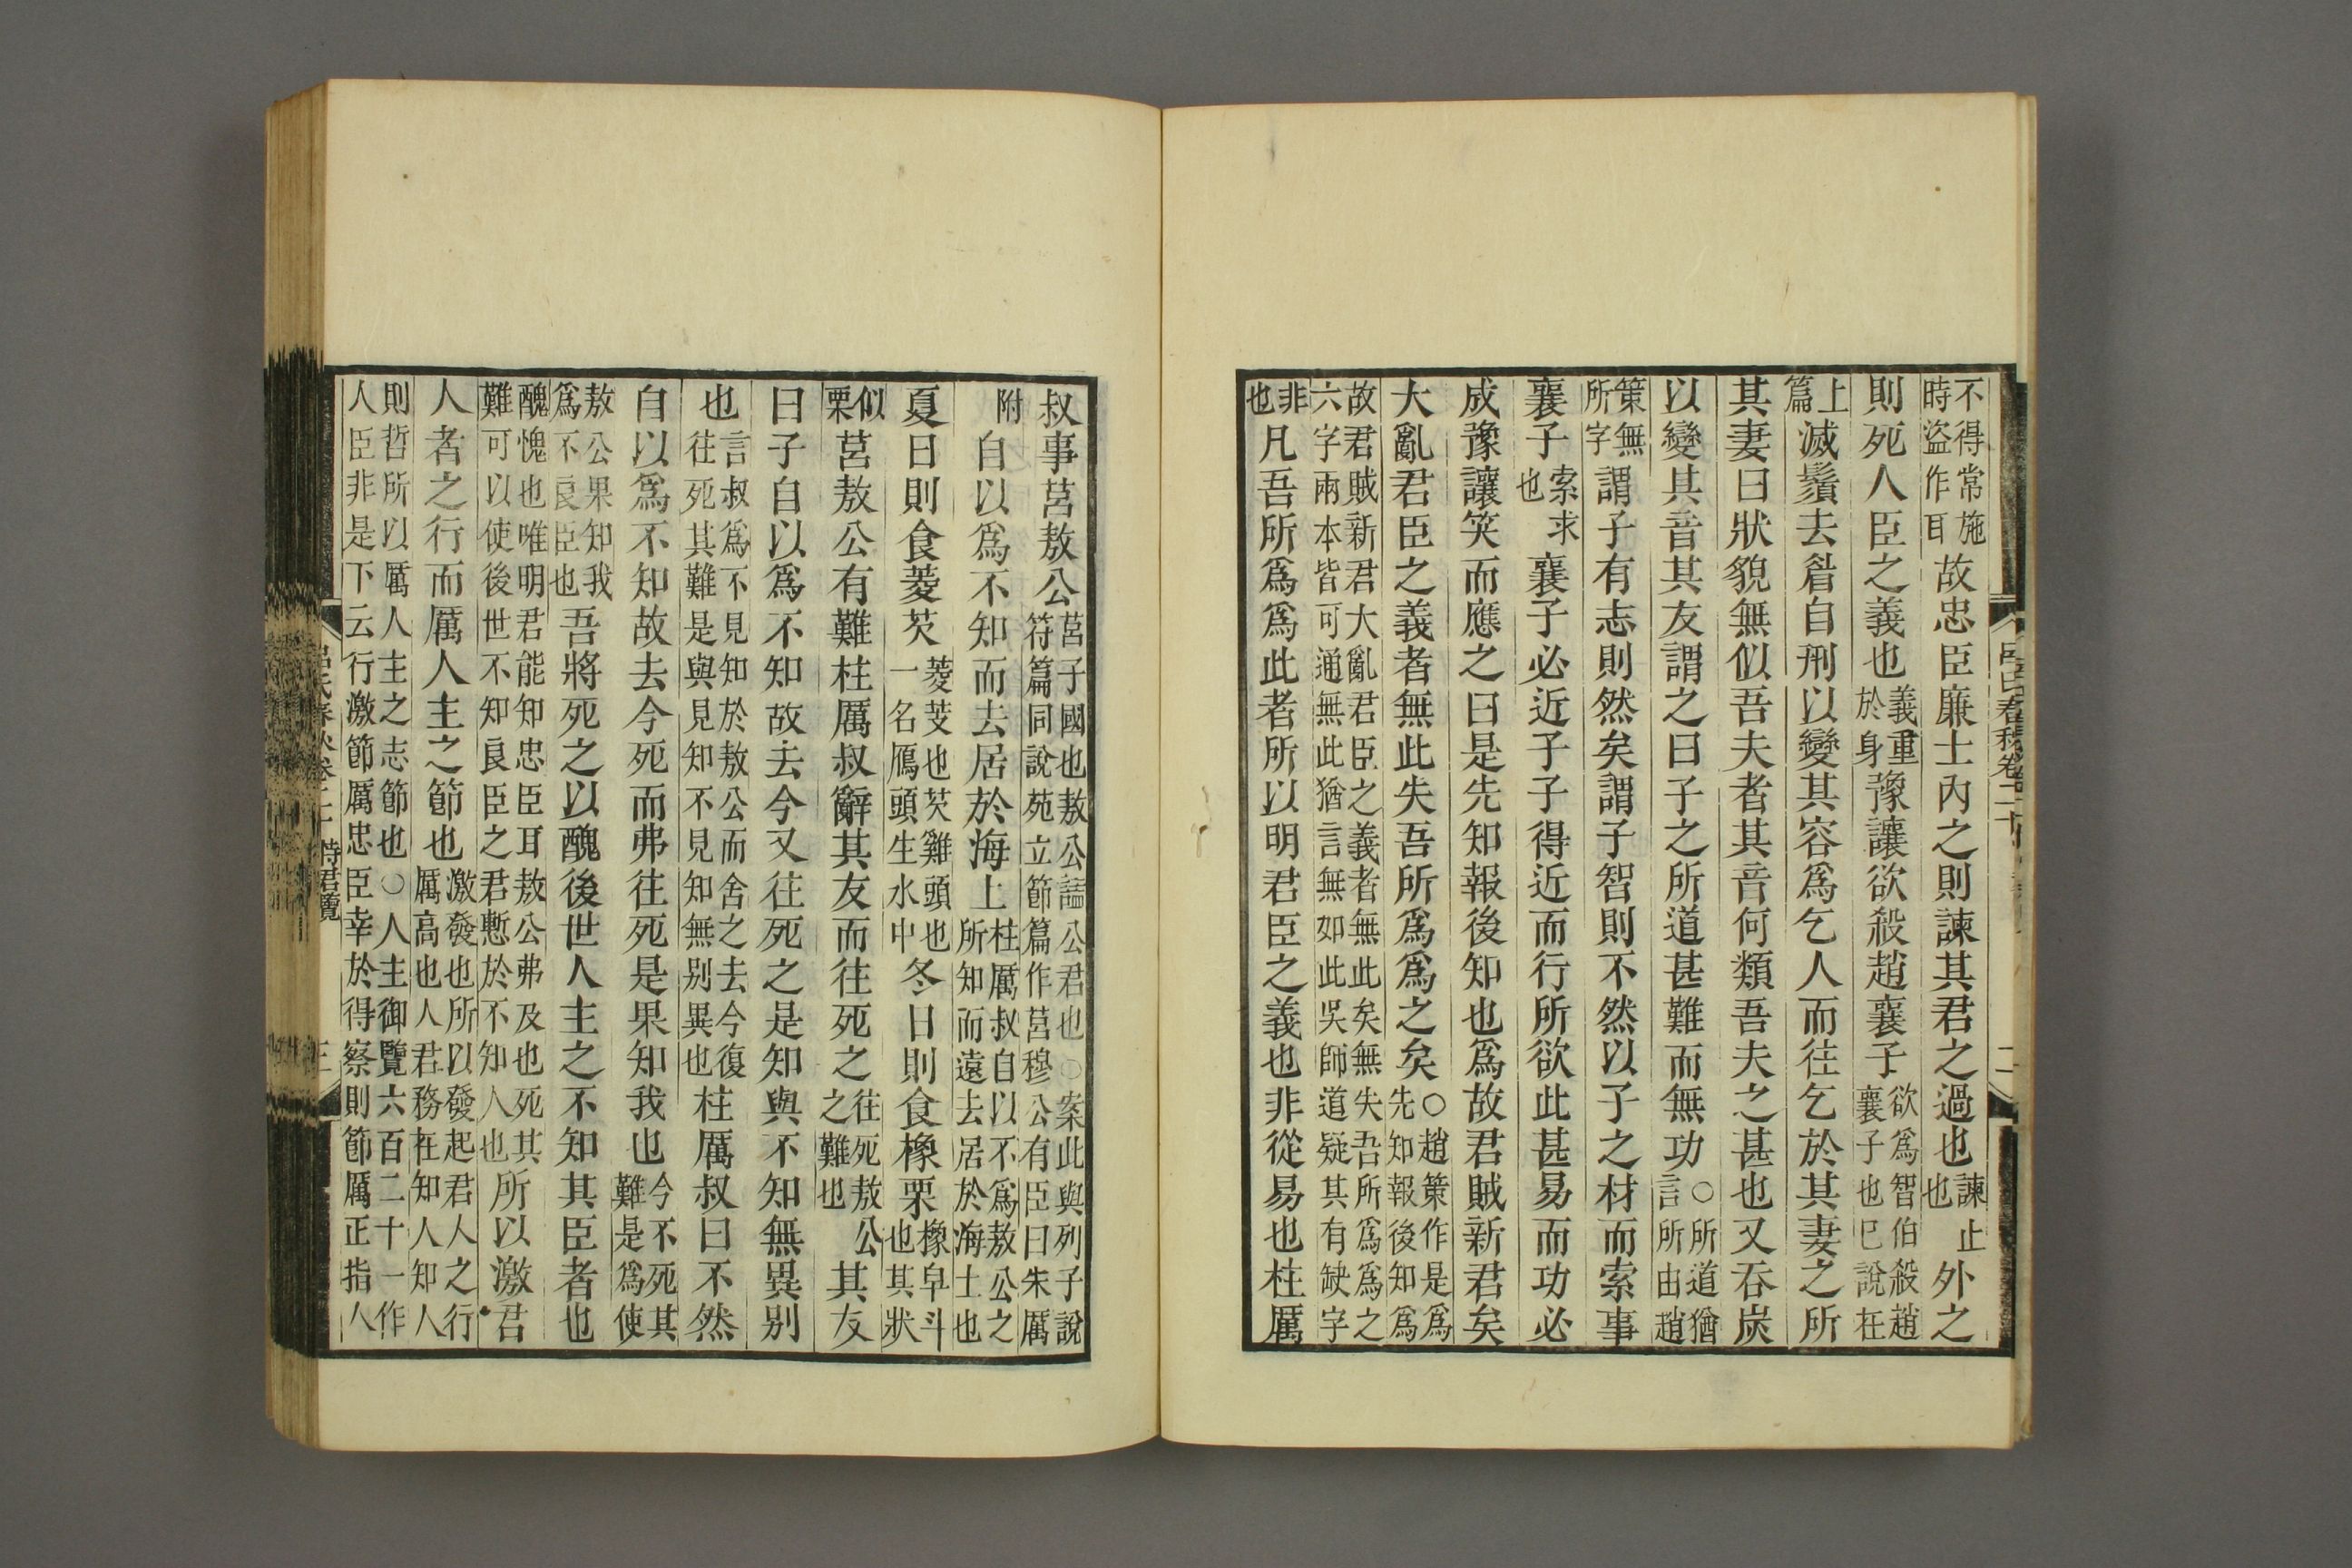 不得常施時盜作耳故忠臣廉士內之則諫其君之過也諫止也外之
則死人臣之義也義重於身豫讓欲殺趙襄子欲爲智伯殺趙襄子也已說在
上篇滅鬚去眉自刑以變其容爲乞人而往乞於其妻之所
其妻曰狀貌無似吾夫者其音何類吾夫之甚也又吞炭
以變其音其友謂之曰子之所道甚難而無功○所道猶言所由趙
策無所字謂子有志則然矣謂子智則不然以子之材而索事
襄子索求也襄子必近子子得近而行所欲此甚易而功必
成豫讓笑而應之曰是先知報後知也爲故君賊新君矣
大亂君臣之義者無此失吾所爲爲之矣○趙策作是爲先知報後知爲
故君賊新君大亂君臣之義者無此矣無失吾所爲爲之六字兩本皆可通無此猶言無如此吳師道疑其有缺字
非也凡吾所爲爲此者所以明君臣之義也非從易也柱厲
叔事莒敖公莒子國也敖公諡公君也○案此與列子說符篇同說苑立節篇作莒穆公有臣曰朱厲
附自以爲不知而去居於海上柱厲叔自以不爲敖公之所知而遠去居於海上也
夏日則食菱芡菱芰也芡雞頭也一名鴈頭生水中冬日則食橡栗橡皁斗也其狀
似栗莒敖公有難柱厲叔辭其友而往死之往死敖公之難也其友
曰子自以爲不知故去今又往死之是知與不知無異别
也言叔爲不見知於敖公而舍之去今復往死其難是與見知不見知無别異也柱厲叔曰不然
自以爲不知故去今死而弗往死是果知我也今不死其難是爲使
敖公果知我爲不良臣也吾將死之以醜後世人主之不知其臣者也
醜愧也唯明君能知忠臣耳敖公弗及也死其難可以使後世不知良臣之君慙於不知人也所以激君
人者之行而厲人主之節也激發也所以發起君人之行厲高也人君務在知人知人
則哲所以厲人主之志節也○人主御覽六百二十一作人臣非是下云行激節厲忠臣幸於得察則節厲正指人
呂氏春秋卷二十 恃君覽 三